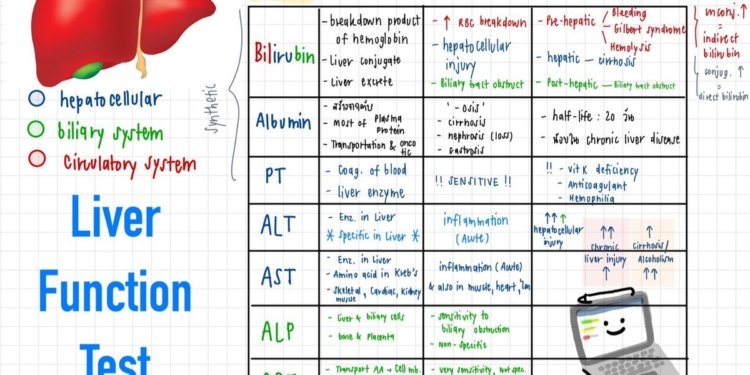 hepatocellular
biliary system
Circulatory system
synthetic
Liver
Function
Test
Bilirubin
- breakdown product
of hemoglobin
- Liver conjugate
- Liver excrete
- ↑ RBC breakdown
- hepatocellular
injury
- Biliary tract obstruct
- Pre-hepatic
Bleeding
Gilbert syndrome
Hemolysis
- hepatic - cirrhosis
- Post-hepatic - Biliary tract obstruct
unconj. ↑
= indirect
bilirubin
conjug. ↑
= direct bilirubin
Albumin
- สร้างจากตับ
- Most of Plasma
Protein
- Transportation & oncotic
" - osis "
- cirrhosis
- nephrosis (loss)
- Gastrosis
- half-life : 20 วัน
- chronic liver disease
PT
- Coag. of blood
- liver enzyme
!! SENSITIVE !!
!! - Vit K deficiency
- Anticoagulant
- Hemophilia
ALT
- Enz. in Liver
* Specific in Liver *
inflammation
(Acute)
↑↑↑
hepatocellular
injury
↑↑
chronic
liver injury
↑
cirrhosis/
Alcoholism
AST
- Enz. in Liver
- Amino acid in Kreb's
- Skeletal, Cardiac, Kidney
muscle
inflammation (Acute)
& also in muscle, heart,
↑
↑↑
ALP
- Liver & biliary cells
- bone & Placenta
- sensitivity to
biliary obstruction
- Non-specific
- Transport AA → Cell mb.
- Very sensitivity, Not spec.